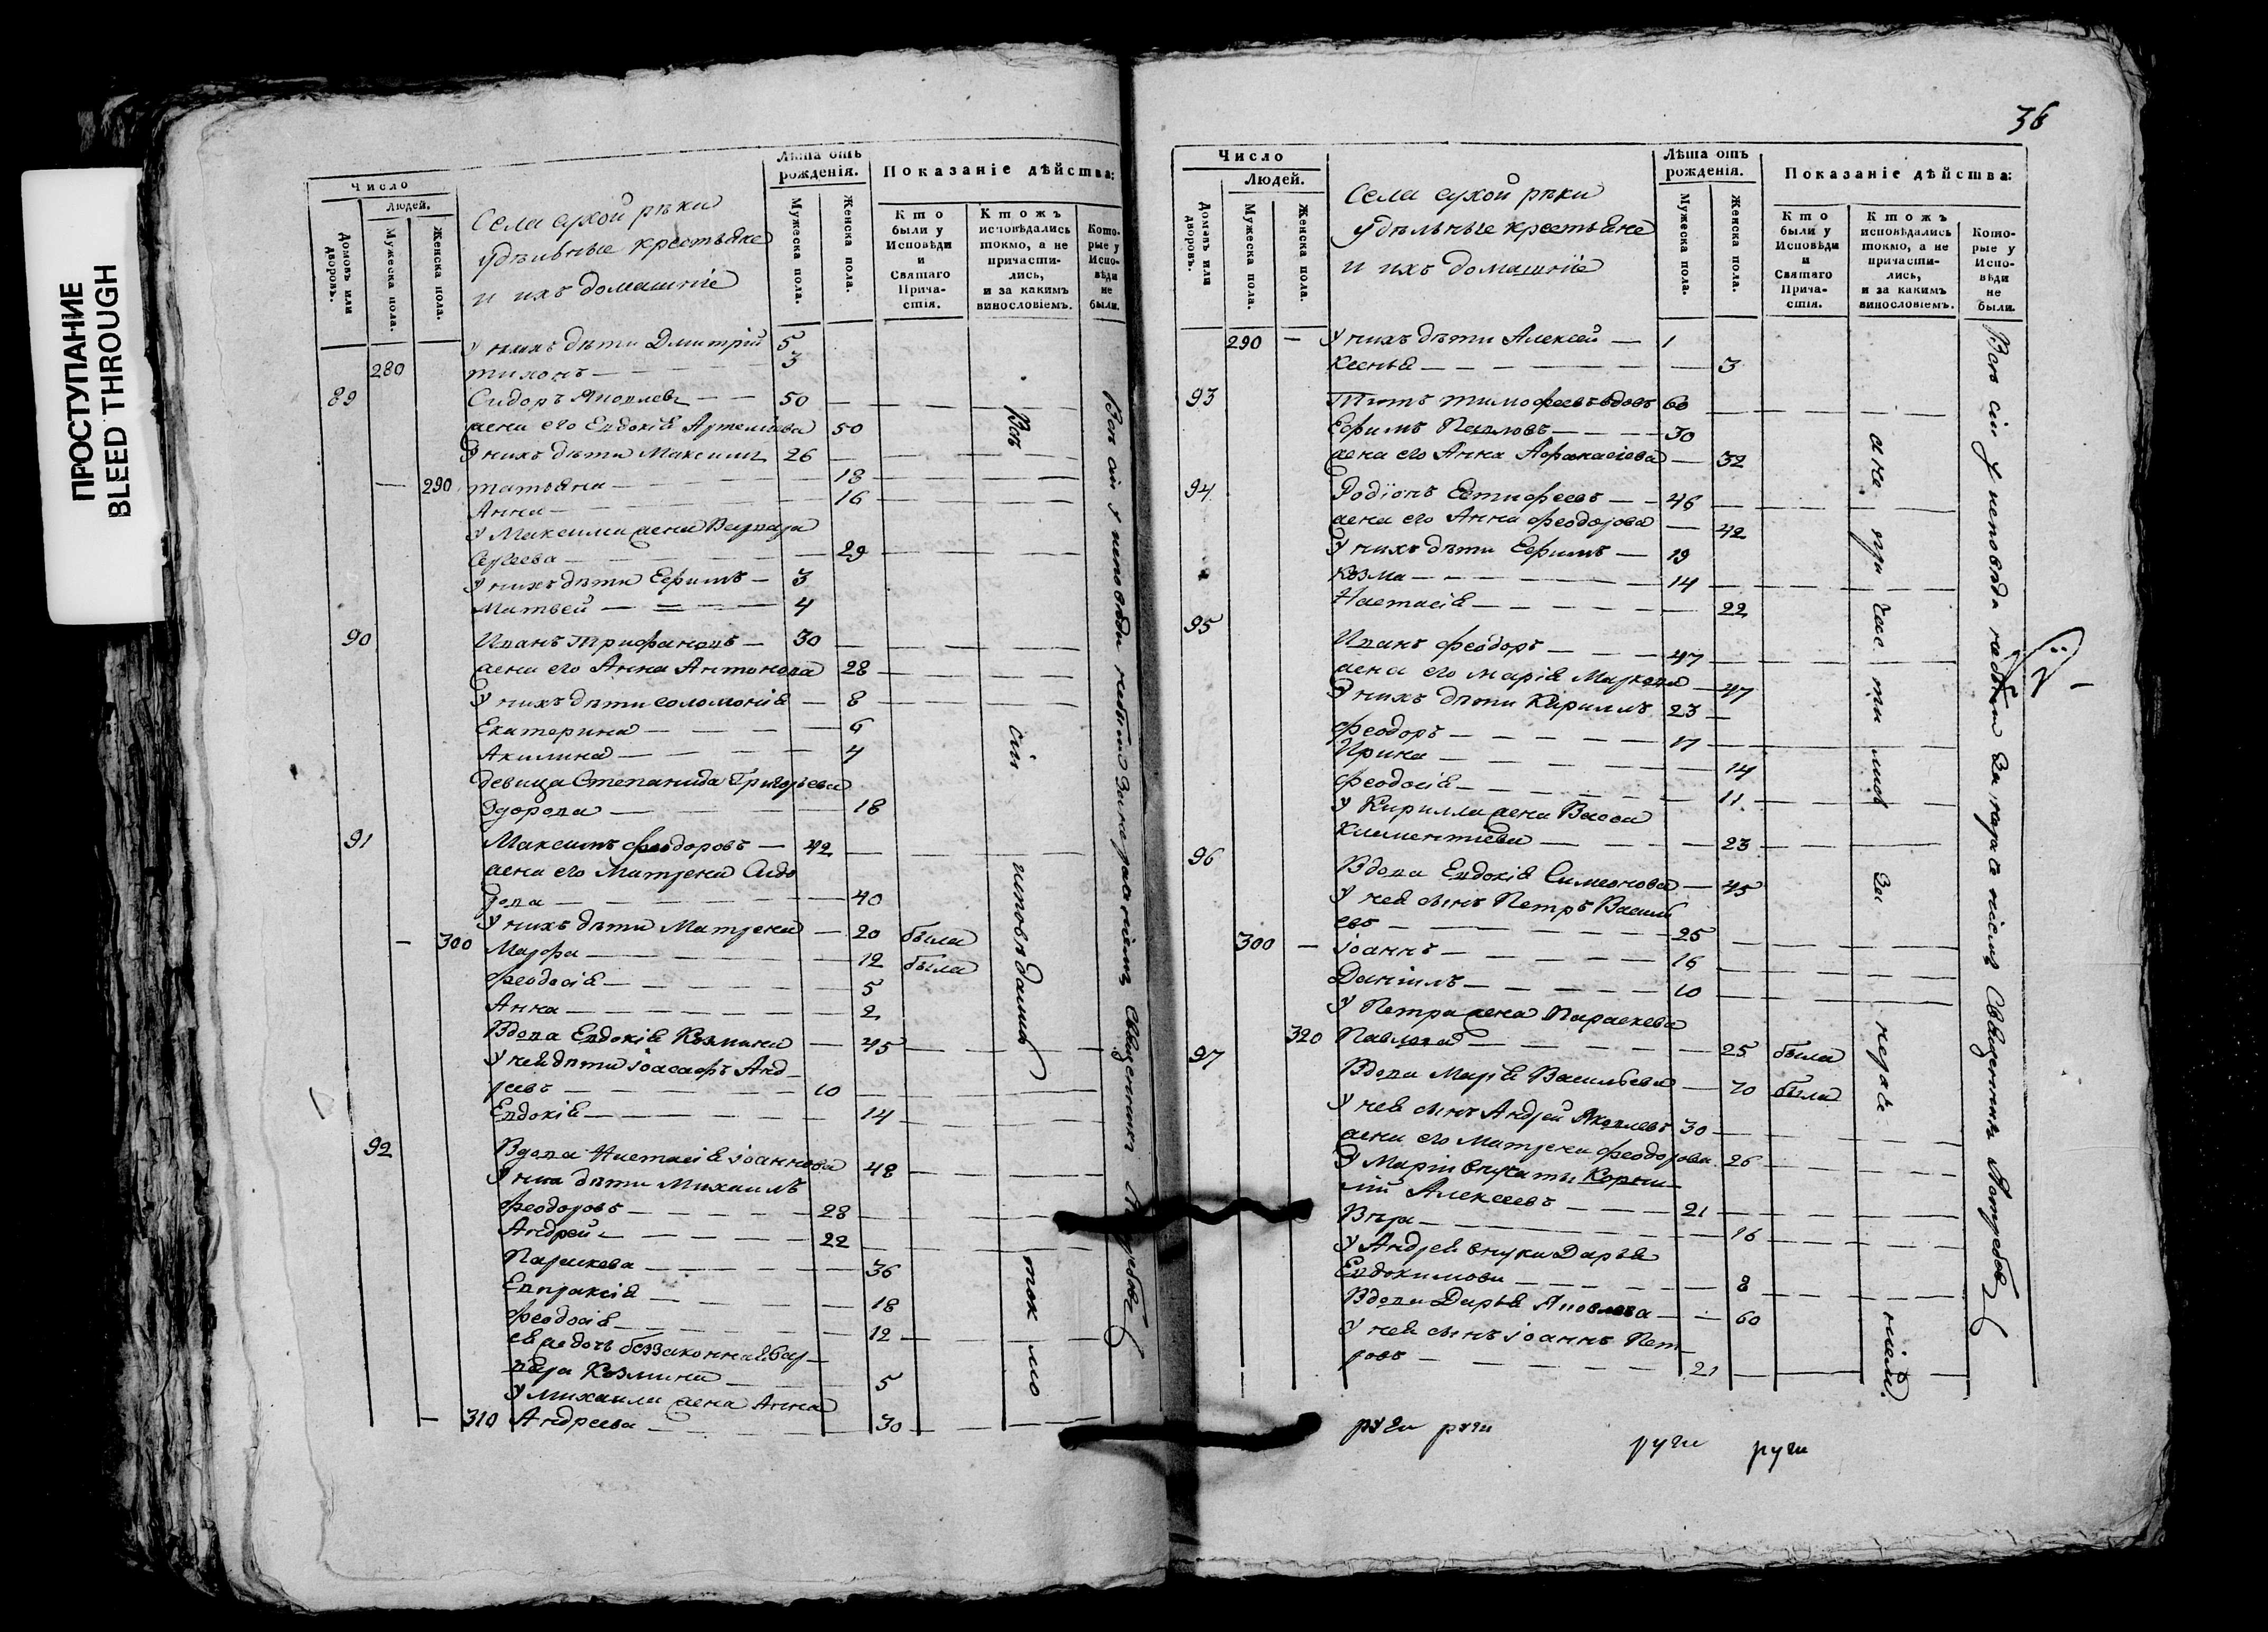 ПРОСТУПАНИЕ
BLEED THROUGH
Число
Людей.
Домовъ или дворовъ.
Мужеска пола.
Женска пола.
Села сухой рѣки
удѣльные крестьяне
и ихъ домашніе
Лѣта отъ рожденія.
Мужеска пола.
Женска пола.
Показаніе дѣйства:
Кто были у Исповѣди и Святаго Причастія.
Ктожъ исповѣдались токмо, а не причастились, и за какимъ винословіемъ.
Которые у Исповѣди не были.
У нихъ дѣти Дмитрій 5
280 Тихонъ — 3
89 Сидоръ Яковлевъ — 50
жена его Евдокія Артемьева 50
У нихъ дѣти Максимъ 26
— 290 Татьяна — 13
Анна — 16
У Максима жена Варвара
Сергеева — 29
У нихъ дѣти Ефимъ — 3
Матвей — 4
90 Иванъ Трифановъ — 30
жена его Анна Антонова 28
У нихъ дѣти Соломонія — 8
Екатерина — 6
Акилина — 4
девица Степанида Григорьева
18
91 Максимъ Феодоровъ — 42
жена его Матрена Сидо
рова — 40
У нихъ дѣти Матрена — 20 была
— 300 Марфа — 12 была
Феодосія — 5
Анна — 2
Вдова Евдокія Козмина — 45
У ней дѣти Іоасафъ Анд
реевъ — 10
Евдокія — 14
92 Вдова Настасія Іоаннова 48
У ниа дѣти Михаилъ
Феодоровъ — 28
Андрей — 22
Параскева — 36
Евпраксія — 18
Феодосія — 12
ея же дочь беззаконная Вар
вара Козмина — 5
У Михаила жена Анна
— 310 Андреева — 30
Всѣ сіи исповѣдались токмо
Всѣ сіи у исповѣди небыли за нераченіемъ Священникъ
36
Число
Людей.
Домовъ или дворовъ.
Мужеска пола.
Женска пола.
Села сухой рѣки
удѣльные крестьяне
и ихъ домашніе
Лѣта отъ рожденія.
Мужеска пола.
Женска пола.
Показаніе дѣйства:
Кто были у Исповѣди и Святаго Причастія.
Ктожъ исповѣдались токмо, а не причастились, и за какимъ винословіемъ.
Которые у Исповѣди не были.
290 — У нихъ дѣти Алексей — 1
Ксенья — 3
93 Титъ Тимофеевъ вдовъ 60
Ефимъ Павловъ — 30
жена его Анна Афанасіева — 32
94 Родіонъ Евтифеевъ — 46
жена его Анна Феодорова — 42
У нихъ дѣти Ефимъ — 19
Козма — 14
Настасія — 22
95 Иванъ Феодоръ — 47
жена его Марія Маркова — 47
У нихъ дѣти Кириллъ 23 —
Феодоръ — 17
Ирина — 14
Феодосія — 11
У Кирилла жена Васса
Климентіева — 23
96 Вдова Евдокія Симеонова — 45
У нея сынъ Петръ Василь
евъ — 25
300 — Іоаннъ — 16
Даніилъ — 10
У Петра жена Параскева
320 Павлова — 25 была
97 Вдова Марія Васильева — 70 была
У нея сынъ Андрей Яковлевъ 30 —
жена его Матрена Феодорова 26
У Маріи внучаты Корни
лій Алексеевъ — 21
Вѣра — 16
У Андрея внука Дарья
Евдокимова — 8
Вдова Дарья Яковлева — 60
У нея сынъ Іоаннъ Пет
ровъ — 21
ане при час тились за нераче ніемъ
Всѣ сіи у исповѣди небыли за нераченіемъ Священникъ